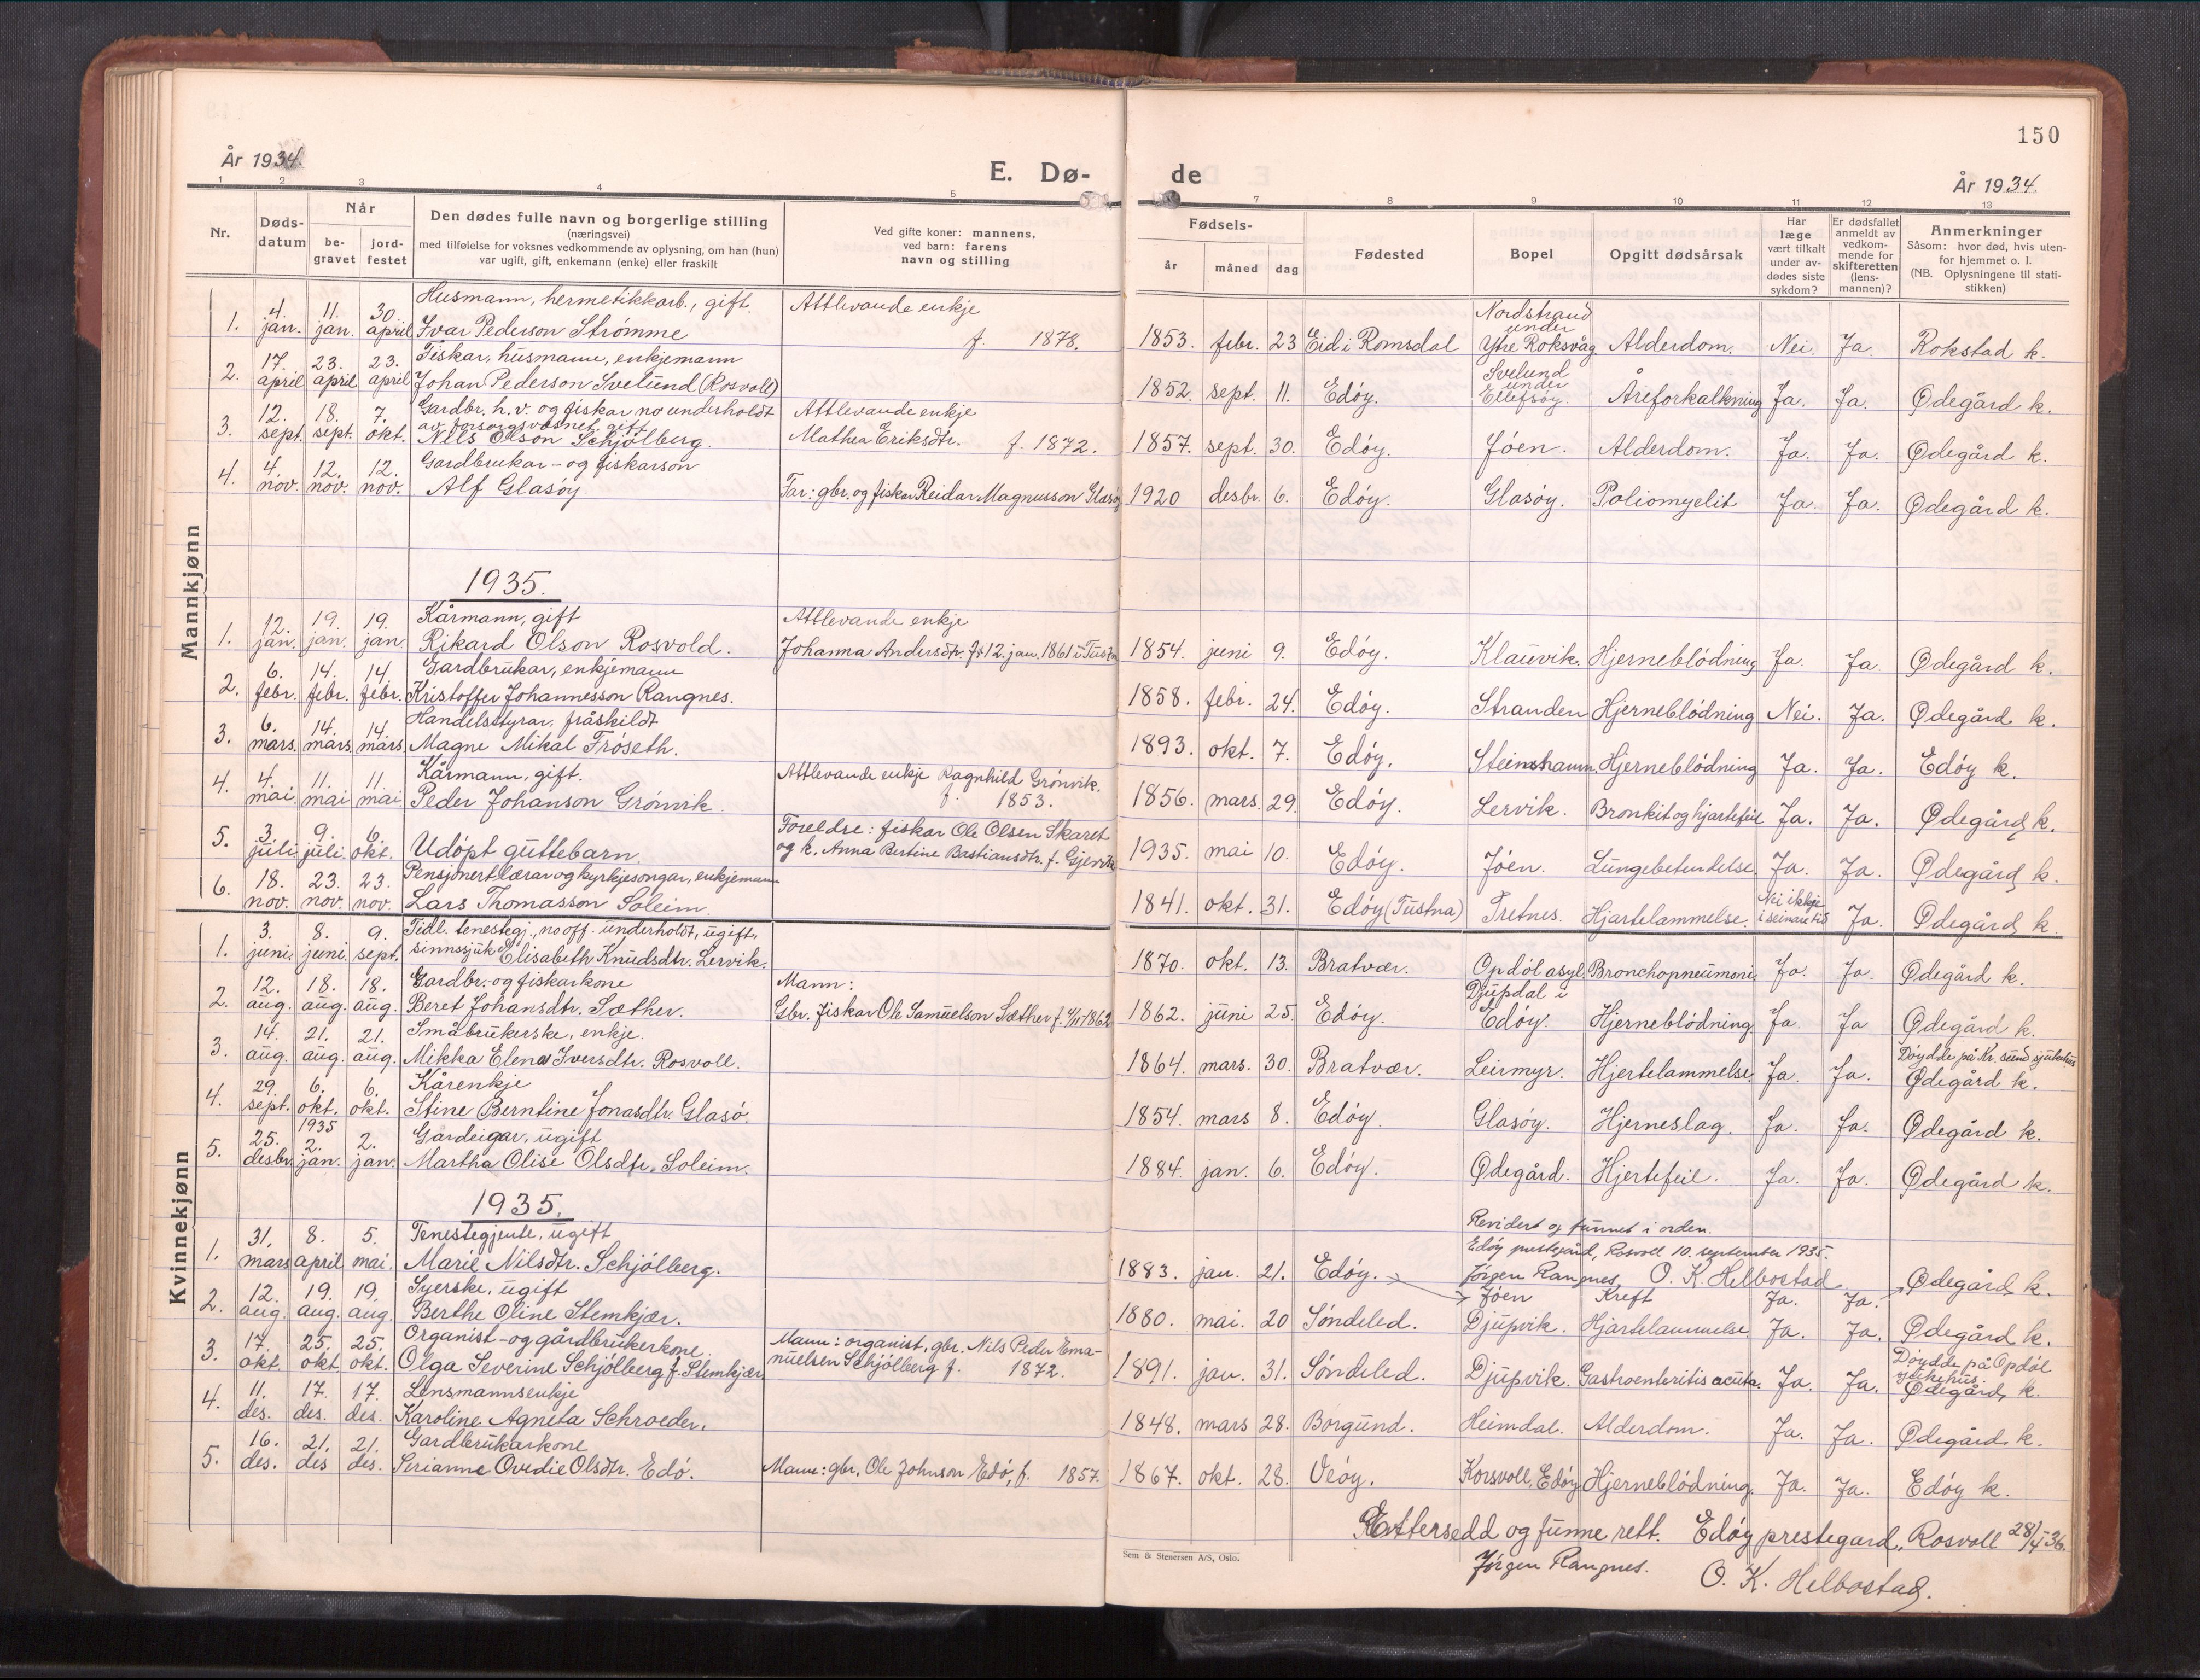 150
År 1934.
E. Dø-
de
År 1934.
1 2 3 4 5 7 8 9 10 11 12 13
Nr.
Døds-
datum
Når
be-
gravet
jord-
festet
Den dødes fulle navn og borgerlige stilling
(næringsvei)
med tilføielse for voksnes vedkommende av oplysning, om han (hun)
var ugift, gift, enkemann (enke) eller fraskilt
Ved gifte koner: mannens,
ved barn: farens
navn og stilling
Fødsels-
år måned dag
Fødested
Bopel
Opgitt dødsårsak
Har
læge
vært tilkalt
under av-
dødes siste
sykdom?
Er dødsfallet
anmeldt av
vedkom-
mende for
skifteretten
(lens-
mannen)?
Anmerkninger
Såsom: hvor død, hvis uten-
for hjemmet o. l.
(NB. Oplysningene til stati-
stikken)
Mannkjønn
1. 4. jan. 11. jan. 30. april Husmann, hermetikkarb., gift.
Ivar Pederson Strømme
Attlevande enkje
f. 1878.
1853. febr. 23 Eid i Romsdal Nordstrand
under
Ytre Roksvåg. Alderdom. Nei. Ja. Rokstad k.
2. 17. april 23. april 23. april Fiskar, husmann, enkjemann
Johan Pederson Svelund (Rosvoll)
1852. sept. 11. Edøy. Svelund
under
Ellefsøy. Åreforkalkning Ja. Ja. Ødegård k.
3. 12. sept. 18. sept. 7. okt. Gardbr. h. v. og fiskar no underholdt
av forsorgsvesnet, gift
Nils Olson Schjølberg.
Attlevande enkje
Mathea Eriksdtr. f. 1872.
1857. sept. 30. Edøy. Jøen. Alderdom. Ja. Ja. Ødegård k.
4. 4. nov. 12. nov. 12. nov. Gardbrukar- og fiskarson
Alf Glasøy
Far: gbr. og fiskar Reidar Magnusson Glasøy
1920 desbr. 6. Edøy. Glasøy. Poliomyelit Ja. Ja. Ødegård k.
1935.
1. 12. jan. 19. jan. 19. jan. Kårmann, gift
Rikard Olson Rosvold.
Attlevande enkje
Johanna Andersdtr. f. 12. jan. 1861 i Tustna
1854. juni 9. Edøy. Klauvik. Hjerneblødning Ja. Ja. Ødegård k.
2. 6. febr. 14. febr. 14. febr. Gardbrukar, enkjemann
Kristoffer Johannesson Rangnes.
1858. febr. 24. Edøy. Stranden Hjerneblødning Nei. Ja. Ødegård k.
3. 6. mars. 14. mars 14. mars Handelsstyrar, fråskildt
Magne Mikal Frøseth.
1893. okt. 7. Edøy. Steinshamn. Hjerneblødning Ja. Ja. Edøy k.
4. 4. mai 11. mai 11. mai Kårmann, gift.
Peder Johanson Grønvik
Attlevande enkje Ragnhild Grønvik.
f. 1853.
1856. mars. 29. Edøy. Lervik. Bronkit og hjartefeil Ja. Ja. Ødegård k.
5. 3. juli 9. juli 6. okt. Udøpt guttebarn
Foreldre: fiskar Ole Olsen Skaret
og k. Anna Bertine Bastiansdtr. f. Gjervik
1935. mai 10. Edøy. Jøen. Lungebetendelse. Ja. Ja. Ødegård k.
6. 18. nov. 23. nov. 23. nov. Pensjonert lærar og kyrkjesongar, enkjemann
Lars Thomasson Soleim.
1841. okt. 31. Edøy (Tustna) Tretnes. Hjartelammelse. Nei ikkje
i seinare tid Ja. Ødegård k.
Kvinnekjønn
1. 3. juni 8. juni 9. sept. Tidl. tenestegj., no off. underholdt, ugift,
sinnssjuk Elisabeth Knudsdtr. Lervik.
1870. okt. 13. Bratvær. Opdøl asyl. Bronchopneumoni. Ja. Ja. Ødegård k.
2. 12. aug. 18. aug. 18. aug. Gardbr.- og fiskarkone
Beret Johansdtr. Sæther.
Mann:
Gbr. fiskar Ole Samuelson Sæther f. 4/11-1862
1862. juni 25. Edøy. Djupdal i
Edøy. Hjerneblødning. Ja. Ja Ødegård k.
3. 14. aug. 21. aug. 21. aug. Småbrukerske, enkje.
Mikka Elena Iversdtr. Rosvoll.
1864. mars. 30. Bratvær. Leirmyr. Hjertelammelse. Ja. Ja. Døydde på Kr. sund sjukehus
Ødegård k.
4. 29. sept. 6. okt. 6. okt. Kårenkje
Stine Berntine Jonasdtr. Glasø.
1854. mars 8. Edøy. Glasøy. Hjerneslag. Ja. Ja. Ødegård k.
5. 25. desbr. 1935 2. jan. 2. jan. Gardeigar, ugift
Martha Olise Olsdtr. Soleim.
1884. jan. 6. Edøy. Ødegård. Hjertefeil. Ja. Ja. Ødegård k.
1935.
Revidert og funnet i orden.
Edøy prestegård, Rosvoll 10. september 1935.
Jørgen Rangnes. O. K. Helbostad
1. 31. mars 8. april 5. mai. Tenestegjente, ugift
Marie Nilsdtr. Schjølberg.
1883. jan. 21. Edøy. Jøen Kreft Ja. Ja. Ødegård k.
2. 12. aug. 19. aug. 19. aug Syerske, ugift
Berthe Oline Stemkjær.
1880. mai. 20 Søndeled. Djupvik. Hjartelammelse Ja. Ja. Ødegård k.
3. 17. okt. 25. okt 25. okt. Organist- og gårdbrukerkone.
Olga Severine Schjølberg f. Stemkjær
Mann: organist, gbr. Nils Peder Ema-
nuelsen Schjølberg f. 1872.
1891. jan. 31. Søndeled. Djupvik. Gastroenteritis acuta. Ja. Ja. Døydde på Opdøl
sjukehus.
Ødegård k.
4. 11. des. 17. des. 17. des. Lensmannsenkje
Karoline Agneta Schroeder.
1848. mars 28. Borgund. Heimdal. Alderdom. Ja. Ja. Ødegård k.
5. 16. des. 21. des 21. des. Gardbrukarkone
Serianne Ovedie Olsdtr. Edø.
Mann: gbr. Ole Johnson Edø, f. 1857.
1867. okt. 28. Veøy. Korsvoll, Edøy Hjerneblødning. Ja. Ja. Edøy k.
Ettersedd og funne rett. Edøy prestegard, Rosvoll 28/1 36.
Jørgen Rangnes. O. K. Helbostad.
Sem & Stenersen A/S, Oslo.